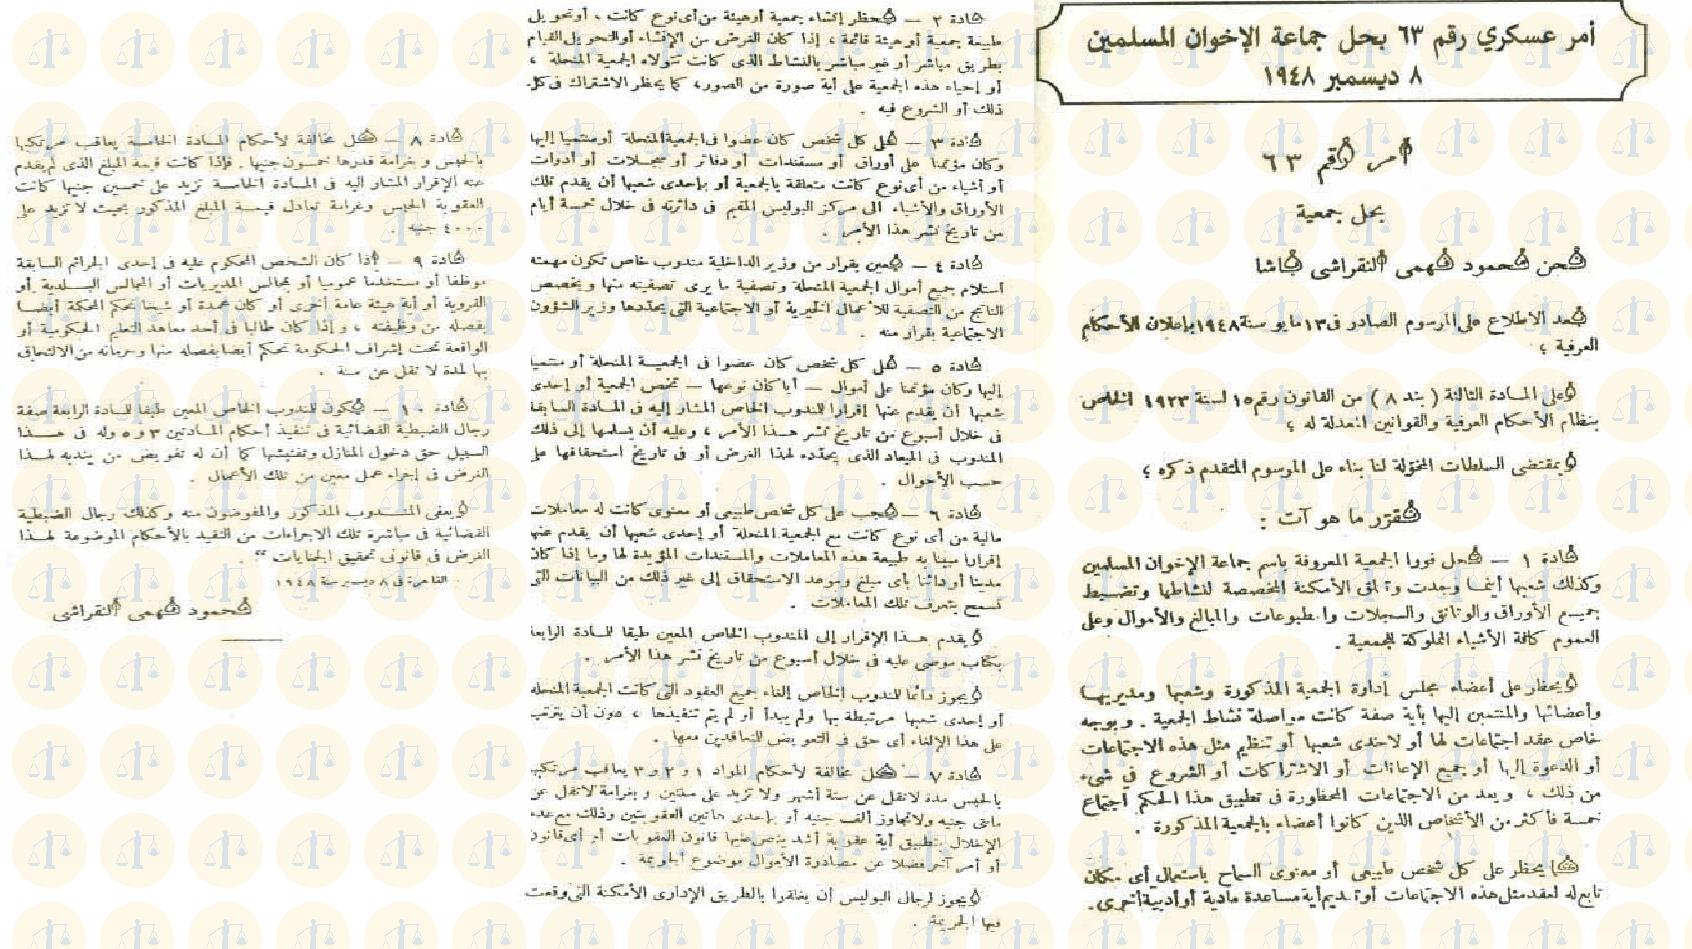 أمر عسكري رقم ٦٣ بحل جماعة الإخوان المسلمين
٨ ديسمبر ١٩٤٨
أمر رقم ٦٣
بحل جمعية
نحن محمود فهمى النقراشى باشا
بعد الاطلاع على المرسوم الصادر فى ١٣ مايو سنة ١٩٤٨ بإعلان الأحكام
العرفية ؛
وعلى المادة الثالثة ( بند ٨ ) من القانون رقم ١٥ لسنة ١٩٢٣ الخاص
بنظام الأحكام العرفية والقوانين المعدلة له ؛
وبمقتضى السلطات المخولة لنا بناء على المرسوم المتقدم ذكره ؛
نقرر ما هو آت :
مادة ١ — تحل فورا الجمعية المعروفة باسم جماعة الإخوان المسلمين
وكذلك شعبها أينما وجدت وتغلق الأمكنة المخصصة لنشاطها وتضبط
جميع الأوراق والوثائق والسجلات والمطبوعات والمبالغ والأموال وعلى
العموم كافة الأشياء المملوكة للجمعية .
ويحظر على أعضاء مجلس إدارة الجمعية المذكورة وشعبها ومديريها
وأعضائها والمنتمين إليها بأية صفة كانت مواصلة نشاط الجمعية . وبوجه
خاص عقد اجتماعات لها أو لاحدى شعبها أو تنظيم مثل هذه الاجتماعات
أو الدعوة إليها أو جميع الإعانات أو الاشتراكات أو الشروع فى شىء
من ذلك ، ويعد من الاجتماعات المحظورة فى تطبيق هذا الحكم اجتماع
خمسة فأكثر من الأشخاص الذين كانوا أعضاء بالجمعية المذكورة .
كما يحظر على كل شخص طبيعى أو معنوى السماح باستعمال أى مكان
تابع له لعقد مثل هذه الاجتماعات أو تقديم أية مساعدة مادية أو أدبية أخرى .
مادة ٢ — يحظر إنشاء جمعية أو هيئة من أى نوع كانت ، أو تحويل
طبيعة جمعية أو هيئة قائمة ، إذا كان الغرض من الإنشاء أو التحويل القيام
بطريق مباشر أو غير مباشر بالنشاط الذى كانت تتولاه الجمعية المنحلة ،
أو إحياء هذه الجمعية على أية صورة من الصور ، كما يحظر الاشتراك فى كل
ذلك أو الشروع فيه .
مادة ٣ — على كل شخص كان عضوا فى الجمعية المنحلة أو منتميا إليها
وكان مؤتمنا على أوراق أو مستندات أو دفاتر أو سجلات أو أدوات
أو أشياء من أى نوع كانت متعلقة بالجمعية أو بإحدى شعبها أن يقدم تلك
الأوراق والأشياء الى مركز البوليس المقيم فى دائرته فى خلال خمسة أيام
من تاريخ نشر هذا الأمر .
مادة ٤ — يعين بقرار من وزير الداخلية مندوب خاص تكون مهمته
استلام جميع أموال الجمعية المنحلة وتصفية ما يرى تصفيته منها ويخصص
الناتج من التصفية للأعمال الخيرية أو الاجتماعية التى يحددها وزير الشؤون
الاجتماعية بقرار منه .
مادة ٥ — على كل شخص كان عضوا فى الجمعية المنحلة أو منتميا
إليها وكان مؤتمنا على أموال — أيا كان نوعها — تخص الجمعية أو إحدى
شعبها أن يقدم عنها إقرارا للمندوب الخاص المشار إليه فى المادة السابقة
فى خلال أسبوع من تاريخ نشر هذا الأمر ، وعليه أن يسلمها إلى ذلك
المندوب فى الميعاد الذى يحدده لهذا الغرض أو فى تاريخ استحقاقها على
حسب الأحوال .
مادة ٦ — يجب على كل شخص طبيعى أو معنوى كانت له معاملات
مالية من أى نوع كانت مع الجمعية المنحلة أو إحدى شعبها أن يقدم عنها
إقرارا مبينا به طبيعة هذه المعاملات والمستندات المؤيدة لها وما إذا كان
مدينا أو دائنا بأى مبلغ وموعد الاستحقاق إلى غير ذلك من البيانات التى
تسمح بتعرف تلك المعاملات .
ويقدم هذا الإقرار إلى المندوب الخاص المعين طبقا للمادة الرابعة
بكتاب موصى عليه فى خلال أسبوع من تاريخ نشر هذا الأمر .
ويجوز دائما للمندوب الخاص إلغاء جميع العقود التى كانت الجمعية المنحلة
أو إحدى شعبها مرتبطة بها ولم يبدأ أو لم يتم تنفيذها ، دون أن يترتب
على هذا الإلغاء أى حق فى التعويض للمتعاقدين معها .
مادة ٧ — كل مخالفة لأحكام المواد ١ و ٢ و ٣ يعاقب مرتكبها
بالحبس مدة لا تقل عن ستة أشهر ولا تزيد على سنتين وبغرامة لا تقل عن
مائتى جنيه ولا تجاوز ألف جنيه أو بإحدى هاتين العقوبتين وذلك مع عدم
الإخلال بتطبيق أية عقوبة أشد ينص عليها قانون العقوبات أو أى قانون
أو أمر آخر فضلا عن مصادرة الأموال موضوع الجريمة .
ويجوز لرجال البوليس أن يغلقوا بالطريق الإدارى الأمكنة التى وقعت
فيها الجريمة .
مادة ٨ — كل مخالفة لأحكام المادة الخامسة يعاقب مرتكبها
بالحبس وبغرامة قدرها خمسون جنيها . فإذا كانت قيمة المبلغ الذى لم يقدم
عنه الإقرار المشار اليه فى المادة الخامسة تزيد على خمسين جنيها كانت
العقوبة الحبس وغرامة تعادل قيمة المبلغ المذكور بحيث لا تزيد على
٤٠٠٠ جنيه .
مادة ٩ — إذا كان الشخص المحكوم عليه فى إحدى الجرائم السابقة
موظفا أو مستخدما عموميا أو بمجالس المديريات أو المجالس البلدية أو
القروية أو أية هيئة عامة أخرى أو كان عمدة أو شيخا تحكم المحكمة أيضا
بفصله من وظيفته ، وإذا كان طالبا فى أحد معاهد التعليم الحكومية أو
الواقعة تحت إشراف الحكومة تحكم أيضا بفصله منها وحرمانه من الالتحاق
بها لمدة لا تقل عن سنة .
مادة ١٠ — يكون للمندوب الخاص المعين طبقا للمادة الرابعة صفة
رجال الضبطية القضائية فى تنفيذ أحكام المادتين ٣ و ٥ وله فى هذا
السبيل حق دخول المنازل وتفتيشها كما أن له تفويض من يندبه لهذا
الغرض فى إجراء عمل معين من تلك الأعمال .
ويعفى المندوب المذكور والمفوضون منه وكذلك رجال الضبطية
القضائية فى مباشرة تلك الاجراءات من التقيد بالأحكام الموضوعة لهذا
الغرض فى قانونى تحقيق الجنايات " .
القاهرة فى ٨ ديسمبر سنة ١٩٤٨
محمود فهمى النقراشى